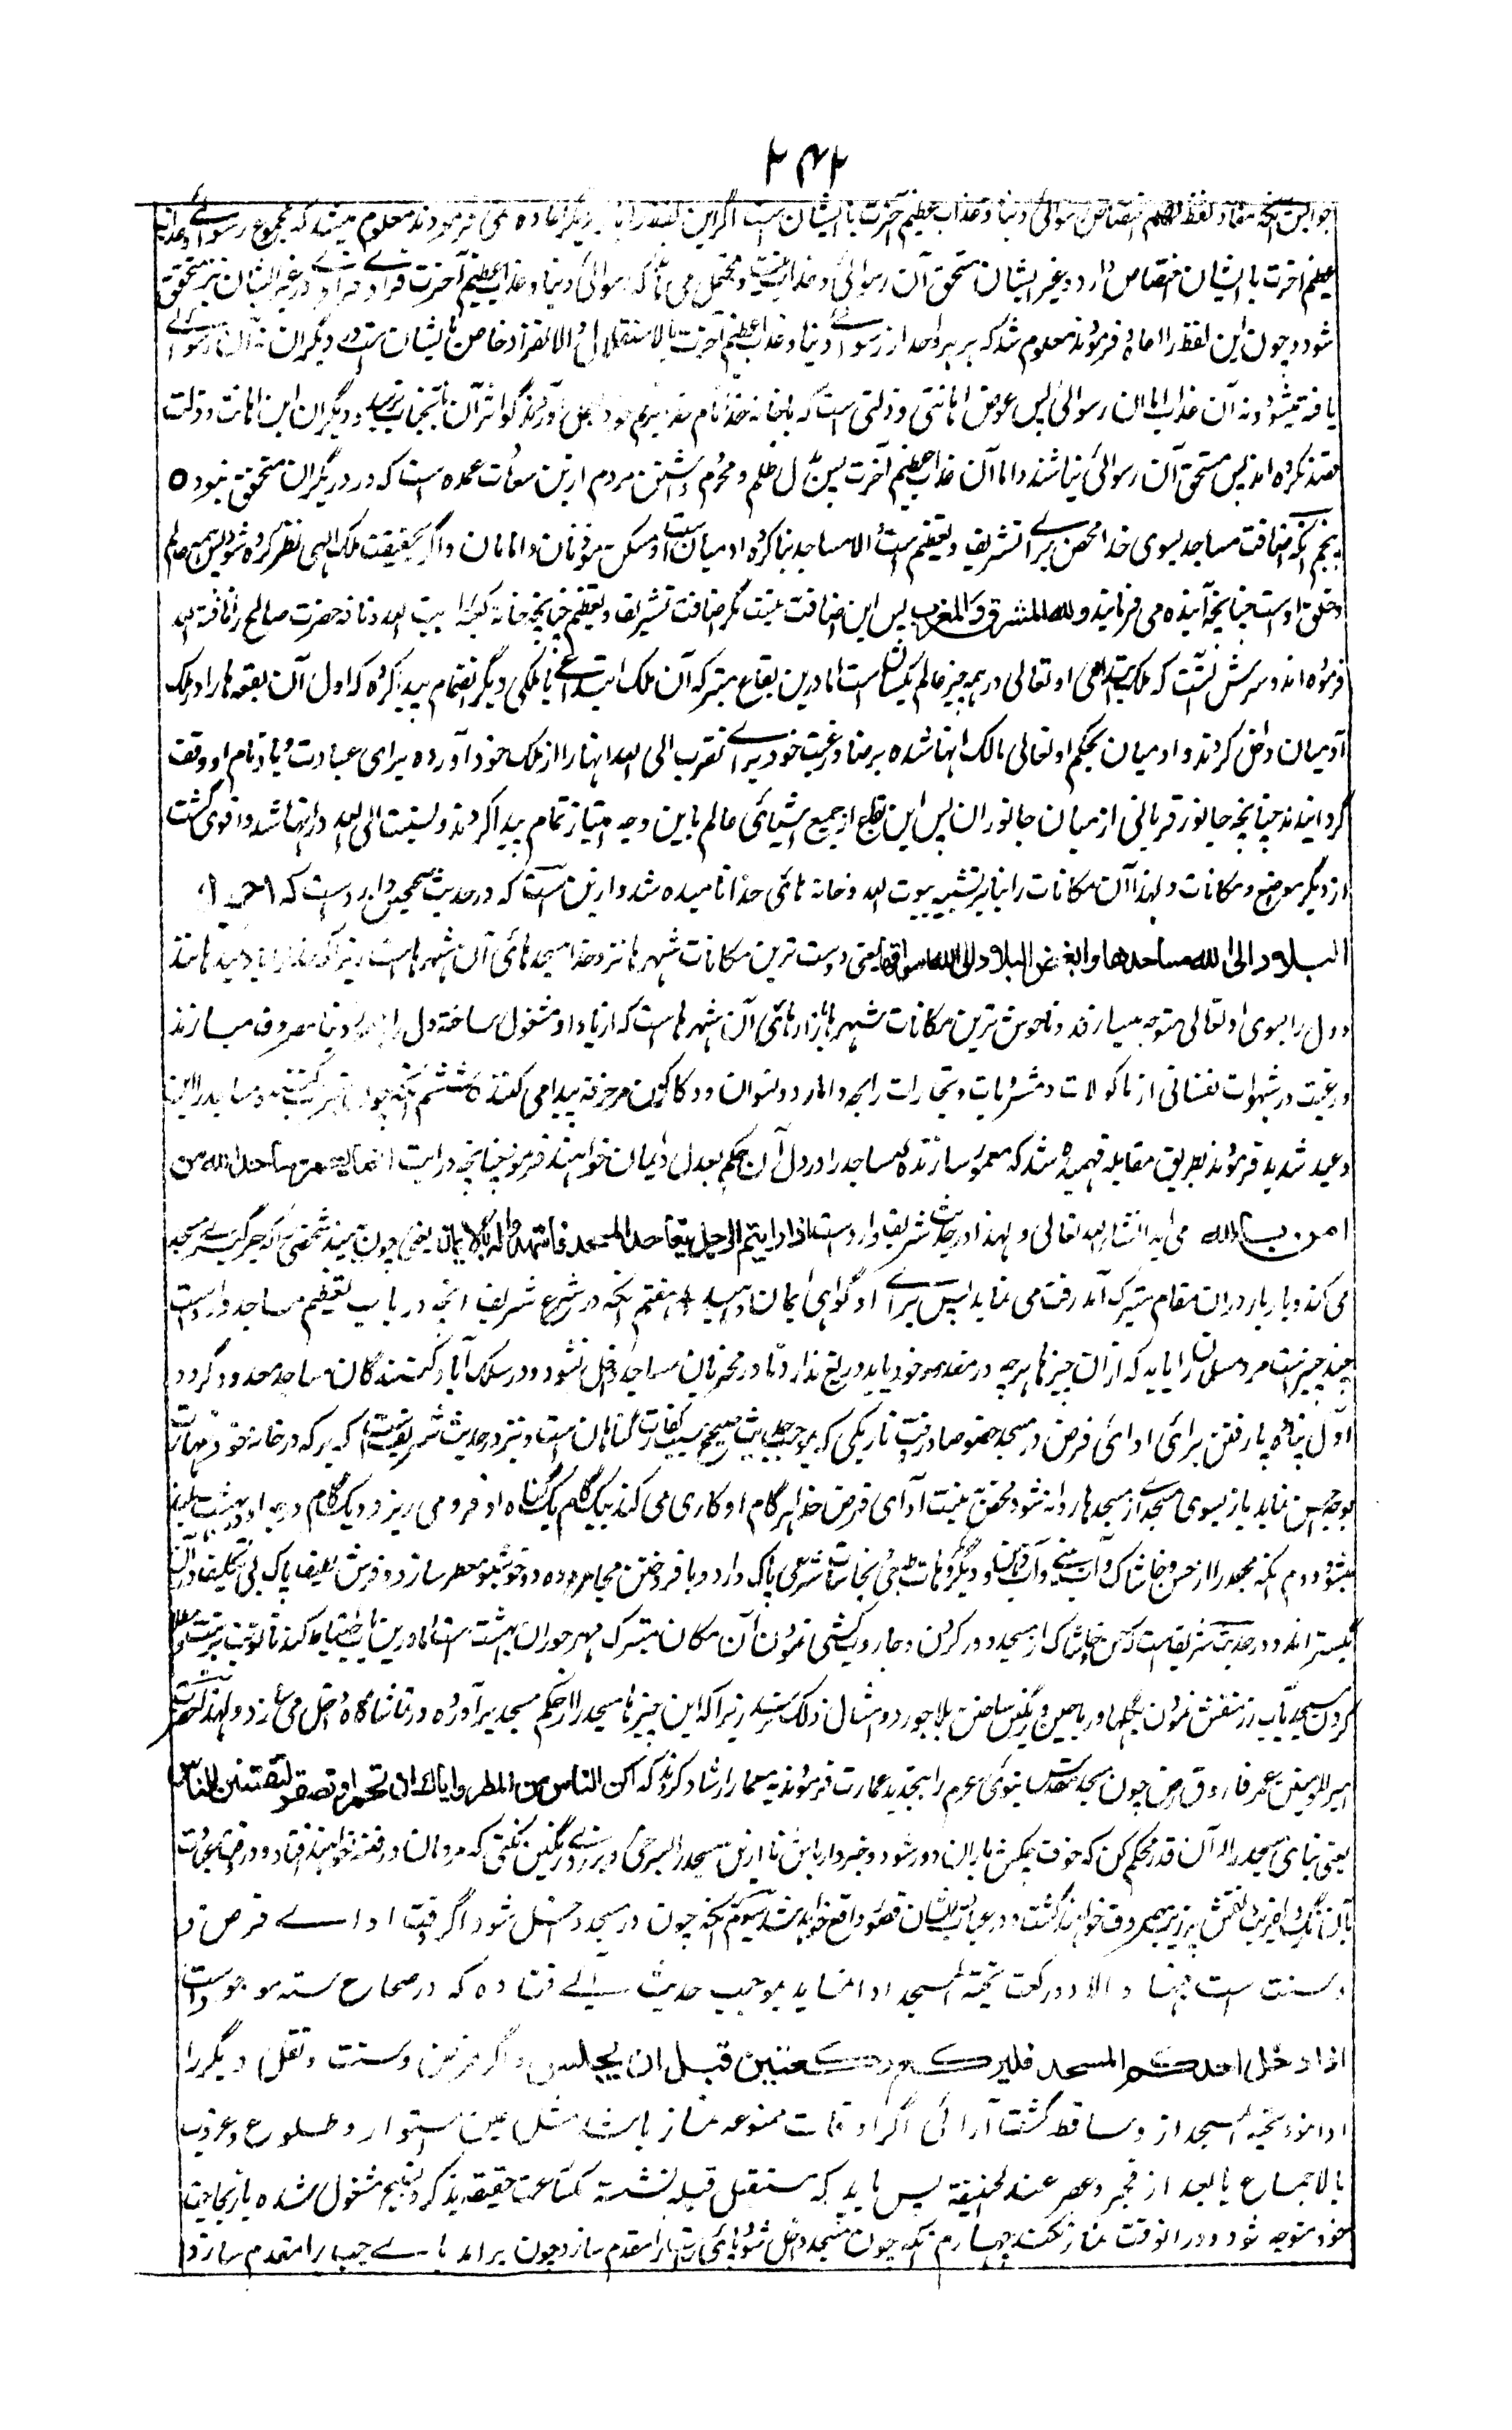 جوابش آنکه مفاد لفظ لهم اختصاص رسوائی دنیا و عذاب عظیم آخرت با ایشان است اگر این لفظ را بار دیگر اعاده نمی فرمودند معلوم میشد که مجموع رسوائی و عذاب
عظیم آخرت با ایشان اختصاص دارد و غیر ایشان مستحق آن رسوائی و عذاب نیست و محتمل می ماند که رسوائی دنیا و عذاب عظیم آخرت فرادی فرادی در غیر ایشان نیز متحقق
شود و چون این لفظ را اعاده فرمودند معلوم شد که هر هر واحد از رسوائی دنیا و عذاب عظیم آخرت بالاستقلال و الانفراد خاص بایشان است و دیگران نه آن رسوائی
یافته میشود و نه آن عذاب اما آن رسوائی پس عوض اهانتی و ذلتی است که بخانه خدا و دیگران این اهانت و ذلت
قصد نکرده اند پس مستحق آن رسوائی نباشند و اما آن عذاب عظیم آخرت پس ظلم و محروم داشتن مردم ازین عمده است که در دیگران متحقق نبود ٥
پنجم آنکه اضافت مساجد بسوی خدا محض برای تشریف و تعظیم است والا مساجد بنا کرده آدمیان است و مسکن مؤذنان و امامان و اگر بحقیقت ملک الهی نظر کرده شود پس همه عالم
و خلق اوست چنانچه آینده می فرمایند ولله المشرق والمغرب پس این اضافت نیست مگر اضافت تشریف و تعظیم چنانچه خانه کعبه را بیت الله و ناقه حضرت صالح را ناقة الله
فرموده اند و سرش آنست که ملکیت او تعالی در همه چیز عالم یکسان است اما درین بقاع متبرکه آن ملک ابتدائی با ملکی دیگر انضمام پیدا کرده که اول آن بقعه ها را در ملک
آدمیان داخل کردند و آدمیان بحکم او تعالی مالک آنها شده برضا و رغبت خود برای تقرب الی الله آنها را از ملک خود آورده برای عبادت و یاد نام او وقف
گردانیدند چنانچه جانور قربانی از میان جانوران پس این بقاع از جمیع اشیای عالم باین وجه امتیاز تمام پیدا کردند و نسبت الی الله در آنها اشد و اقوی گشت
از دیگر مواضع و مکانات و لهذا آن مکانات را بنابر تشبیه بیوت الله و خانه های خدا نامیده شد و ازین است که در حدیث صحیح وارد است که احب
البلاد الی الله مساجدها و ابغض البلاد الی الله اسواقها یعنی دوست ترین مکانات شهرها نزد خدا مسجد های آن شهرهاست زیرا که
و دل را بسوی او تعالی متوجه میسازند و ناخوش ترین مکانات شهرها بازارهای آن شهرهاست که از یاد او مشغول ساخته دل را دنیا مصروف میسازند
و رغبت در شهوات نفسانی از ماکولات و مشروبات و تجارات رابحه و امارد و نسوان و دکاکین مزخرفه پیدا می کنند ششم آنکه چون مساجد را این
وعید شدید فرمودند بطریق مقابله فهمیده شد که معمور سازنده مساجد را در دل آن حکم بعدل و ایمان خواهند فرمود چنانچه در آیت انما یعمر مساجد الله من
امن بالله می آید انشاء الله تعالی و لهذا در حدیث شریف وارد است اذا رایتم الرجل یتعاهد المسجد فاشهدوا له بالایمان یعنی چون ببینید شخصی را که خبرگیری مسجد
می کند و بار بار دران مقام متبرک آمد رفت می نماید پس برای او گواهی ایمان دهید هفتم آنکه در شرع شریف آنچه در باب تعظیم مساجد وارد است
چند چیز است مرد مسلمان را باید که از آن چیزها هر چه در مقدور خود باید دریغ ندارد تا در مخربان مساجد داخل نشود و در سلک آبادکنندگان مساجد معدود گردد
اول پیاده پا رفتن برای ادائ فرض در مسجد خصوصا در وقت تاریکی که بموجب حدیث صحیح سبب کفارت گناهان است و نیز در حدیث شریف است که هر که در خانه خود طهارت
بوجه احسن نماید باز بسوی مسجدی از مسجدها روانه شود محض بنیت ادای فرض خدا هر گام او کاری می کند بیک گام یک گناه او فرو می ریزد و بیک گام درجه او در بهشت بلند
میشود دوم آنکه مسجد را از خس و خاشاک و آب بینی و آب دهان و دیگر مکروهات طبعی و نجاسات شرعی پاک دارد و بافروختن مجامر و دود خوشبو معطر سازد و فرش نظیف پاک بی تکلیف دران
بگستراند و در حدیث شریف است که خس و خاشاک از مسجد دور کردن و جاروب کشی نمودن آن مکان متبرک مهر حوران بهشت است اما درین باب احتیاط کند تا نوبت بزینت
کردن مسجد بآب زر منقش نمودن بگلها و ریاحین و رنگین ساختن بلاجورد و امثال ذلک نرسد زیرا که این چیزها مسجد را از حکم مسجد برآورده در تماشاگاه داخل می سازد و لهذا حضرت
امیر المومنین عمر فاروق رض چون مسجد مقدس نبوی محرم را بتجدید عمارت فرمودند به معمار ارشاد کردند که اکن الناس من المطر و ایاک ان تحمر او تصفر لتفتنن الناس
یعنی بنای مسجد را آن قدر محکم کن که خوف چکش باران دور شود و خبردار باش تا این مسجد را بسرخی و زردی رنگین نکنی که مردمان در فتنه خواهند افتاد و در عبادت
بآن رنگ و نقش مصروف خواهند گشت و در عبادت ایشان قصور واقع خواهد شد سیوم آنکه چون در مسجد داخل شود اگر وقت ادای فرض
و سنت است فبها والا دو رکعت تحیة المسجد ادا نماید بموجب حدیث ابی قتاده که در صحاح سته موجود است
اذا دخل احدکم المسجد فلیرکع رکعتین قبل ان یجلس و اگر فرض و سنت و نفل دیگر را
ادا نمود تحیة المسجد از و ساقط گشت آرائی اگر اوقات ممنوعه نماز باشد مثل عین استوا و طلوع و غروب
بالاجماع یا بعد از فجر و عصر عند الحنفیة پس باید که مستقبل قبله نشسته یکساعت حقیقه بذکر و تسبیح مشغول شده باز بحاجت
خود متوجه شود و درانوقت نماز نکند چهارم آنکه چون بمسجد داخل شود پای راست را مقدم سازد و چون برآید پای چپ را مقدم سازد